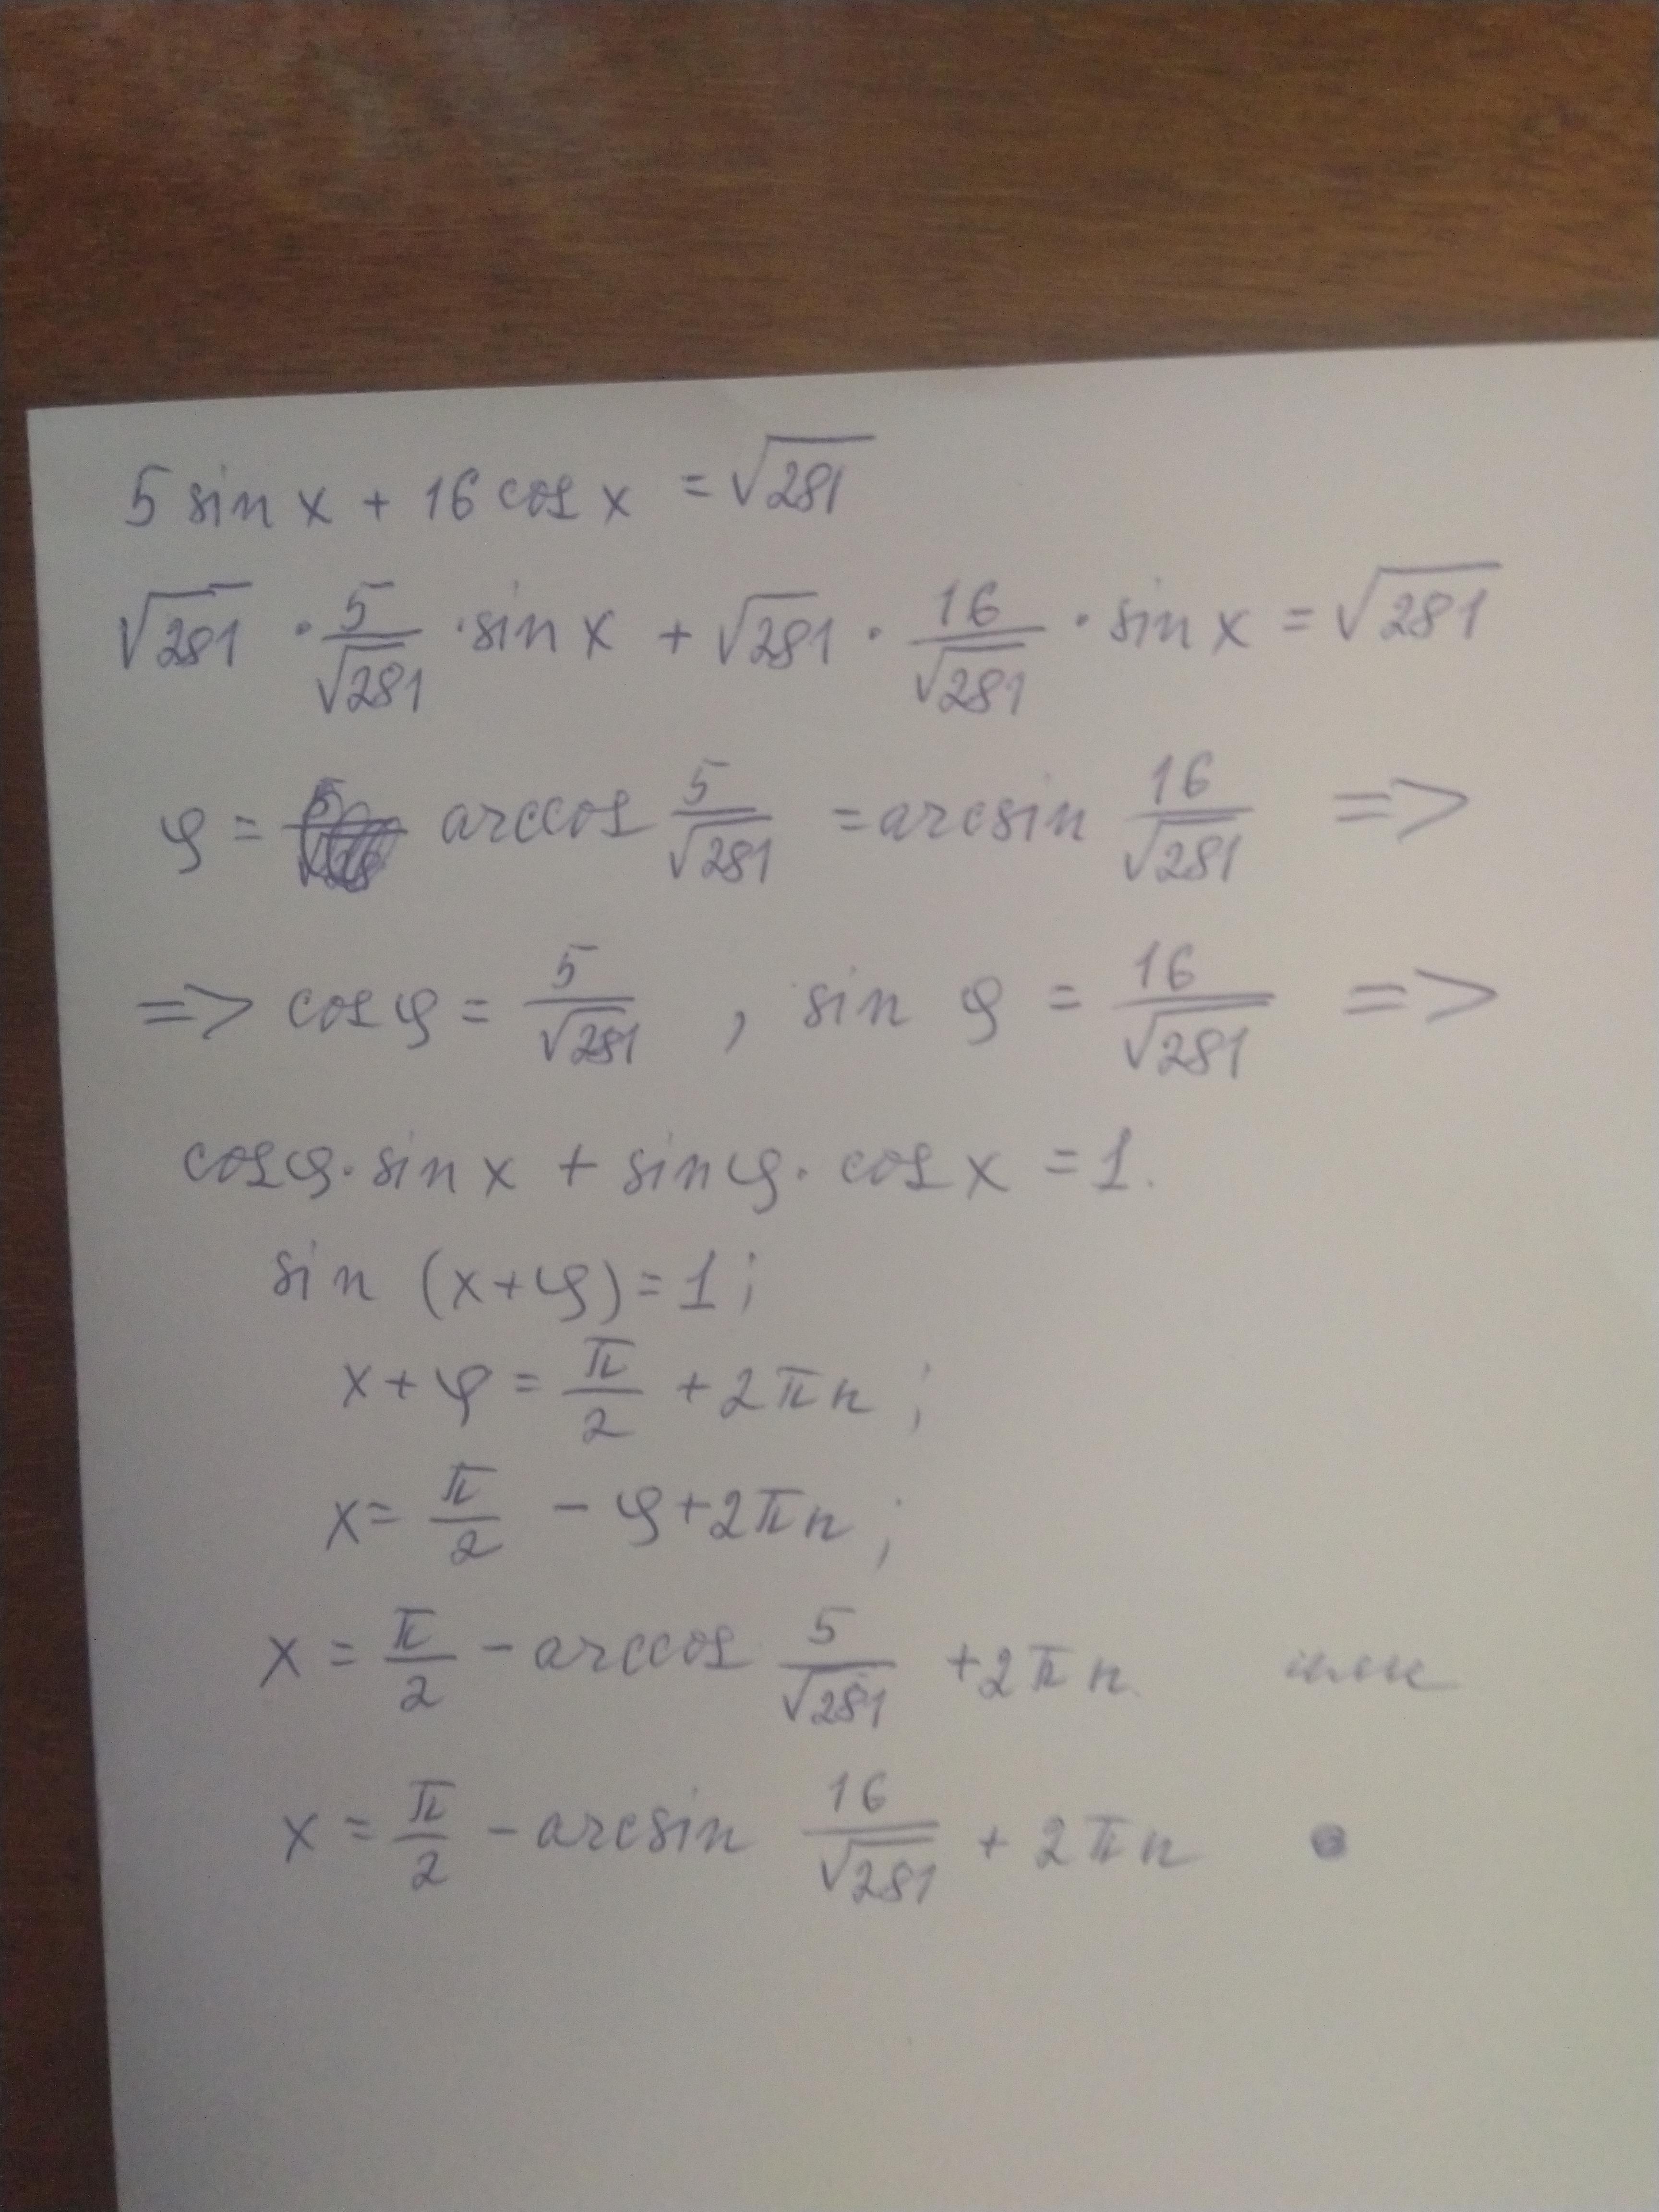 5 sin x + 16 cos x = √281
√281 · 5/√281 · sin x + √281 · 16/√281 · sin x = √281
φ = arccos 5/√281 = arcsin 16/√281 =>
=> cos φ = 5/√281 , sin φ = 16/√281 =>
cos φ · sin x + sin φ · cos x = 1.
sin (x+φ) = 1;
x + φ = π/2 + 2πn;
x = π/2 - φ + 2πn;
x = π/2 - arccos 5/√281 + 2πn. или
x = π/2 - arcsin 16/√281 + 2πn